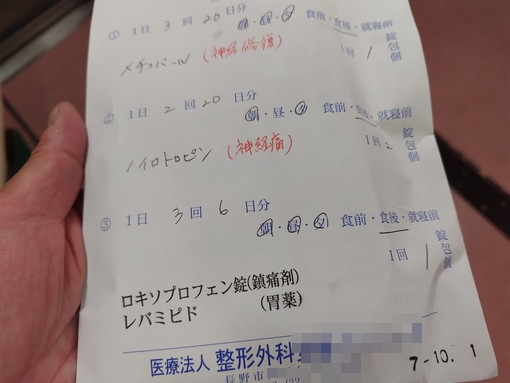 ① 1日 3 回 20 日分
朝・昼・夕 食前・食後・就寝前
メチコバール (神経修復)
1回 1 錠 包 個
② 1日 2 回 20 日分
朝・昼・夕 食前・食後・就寝前
ノイロトロピン (神経痛)
1回 2 錠 包 個
③ 1日 3 回 6 日分
朝・昼・夕 食前・食後・就寝前
1回 1 錠 包 個
ロキソプロフェン錠(鎮痛剤)
レバミピド (胃薬)
医療法人 整形外科
長野市
7-10. 1